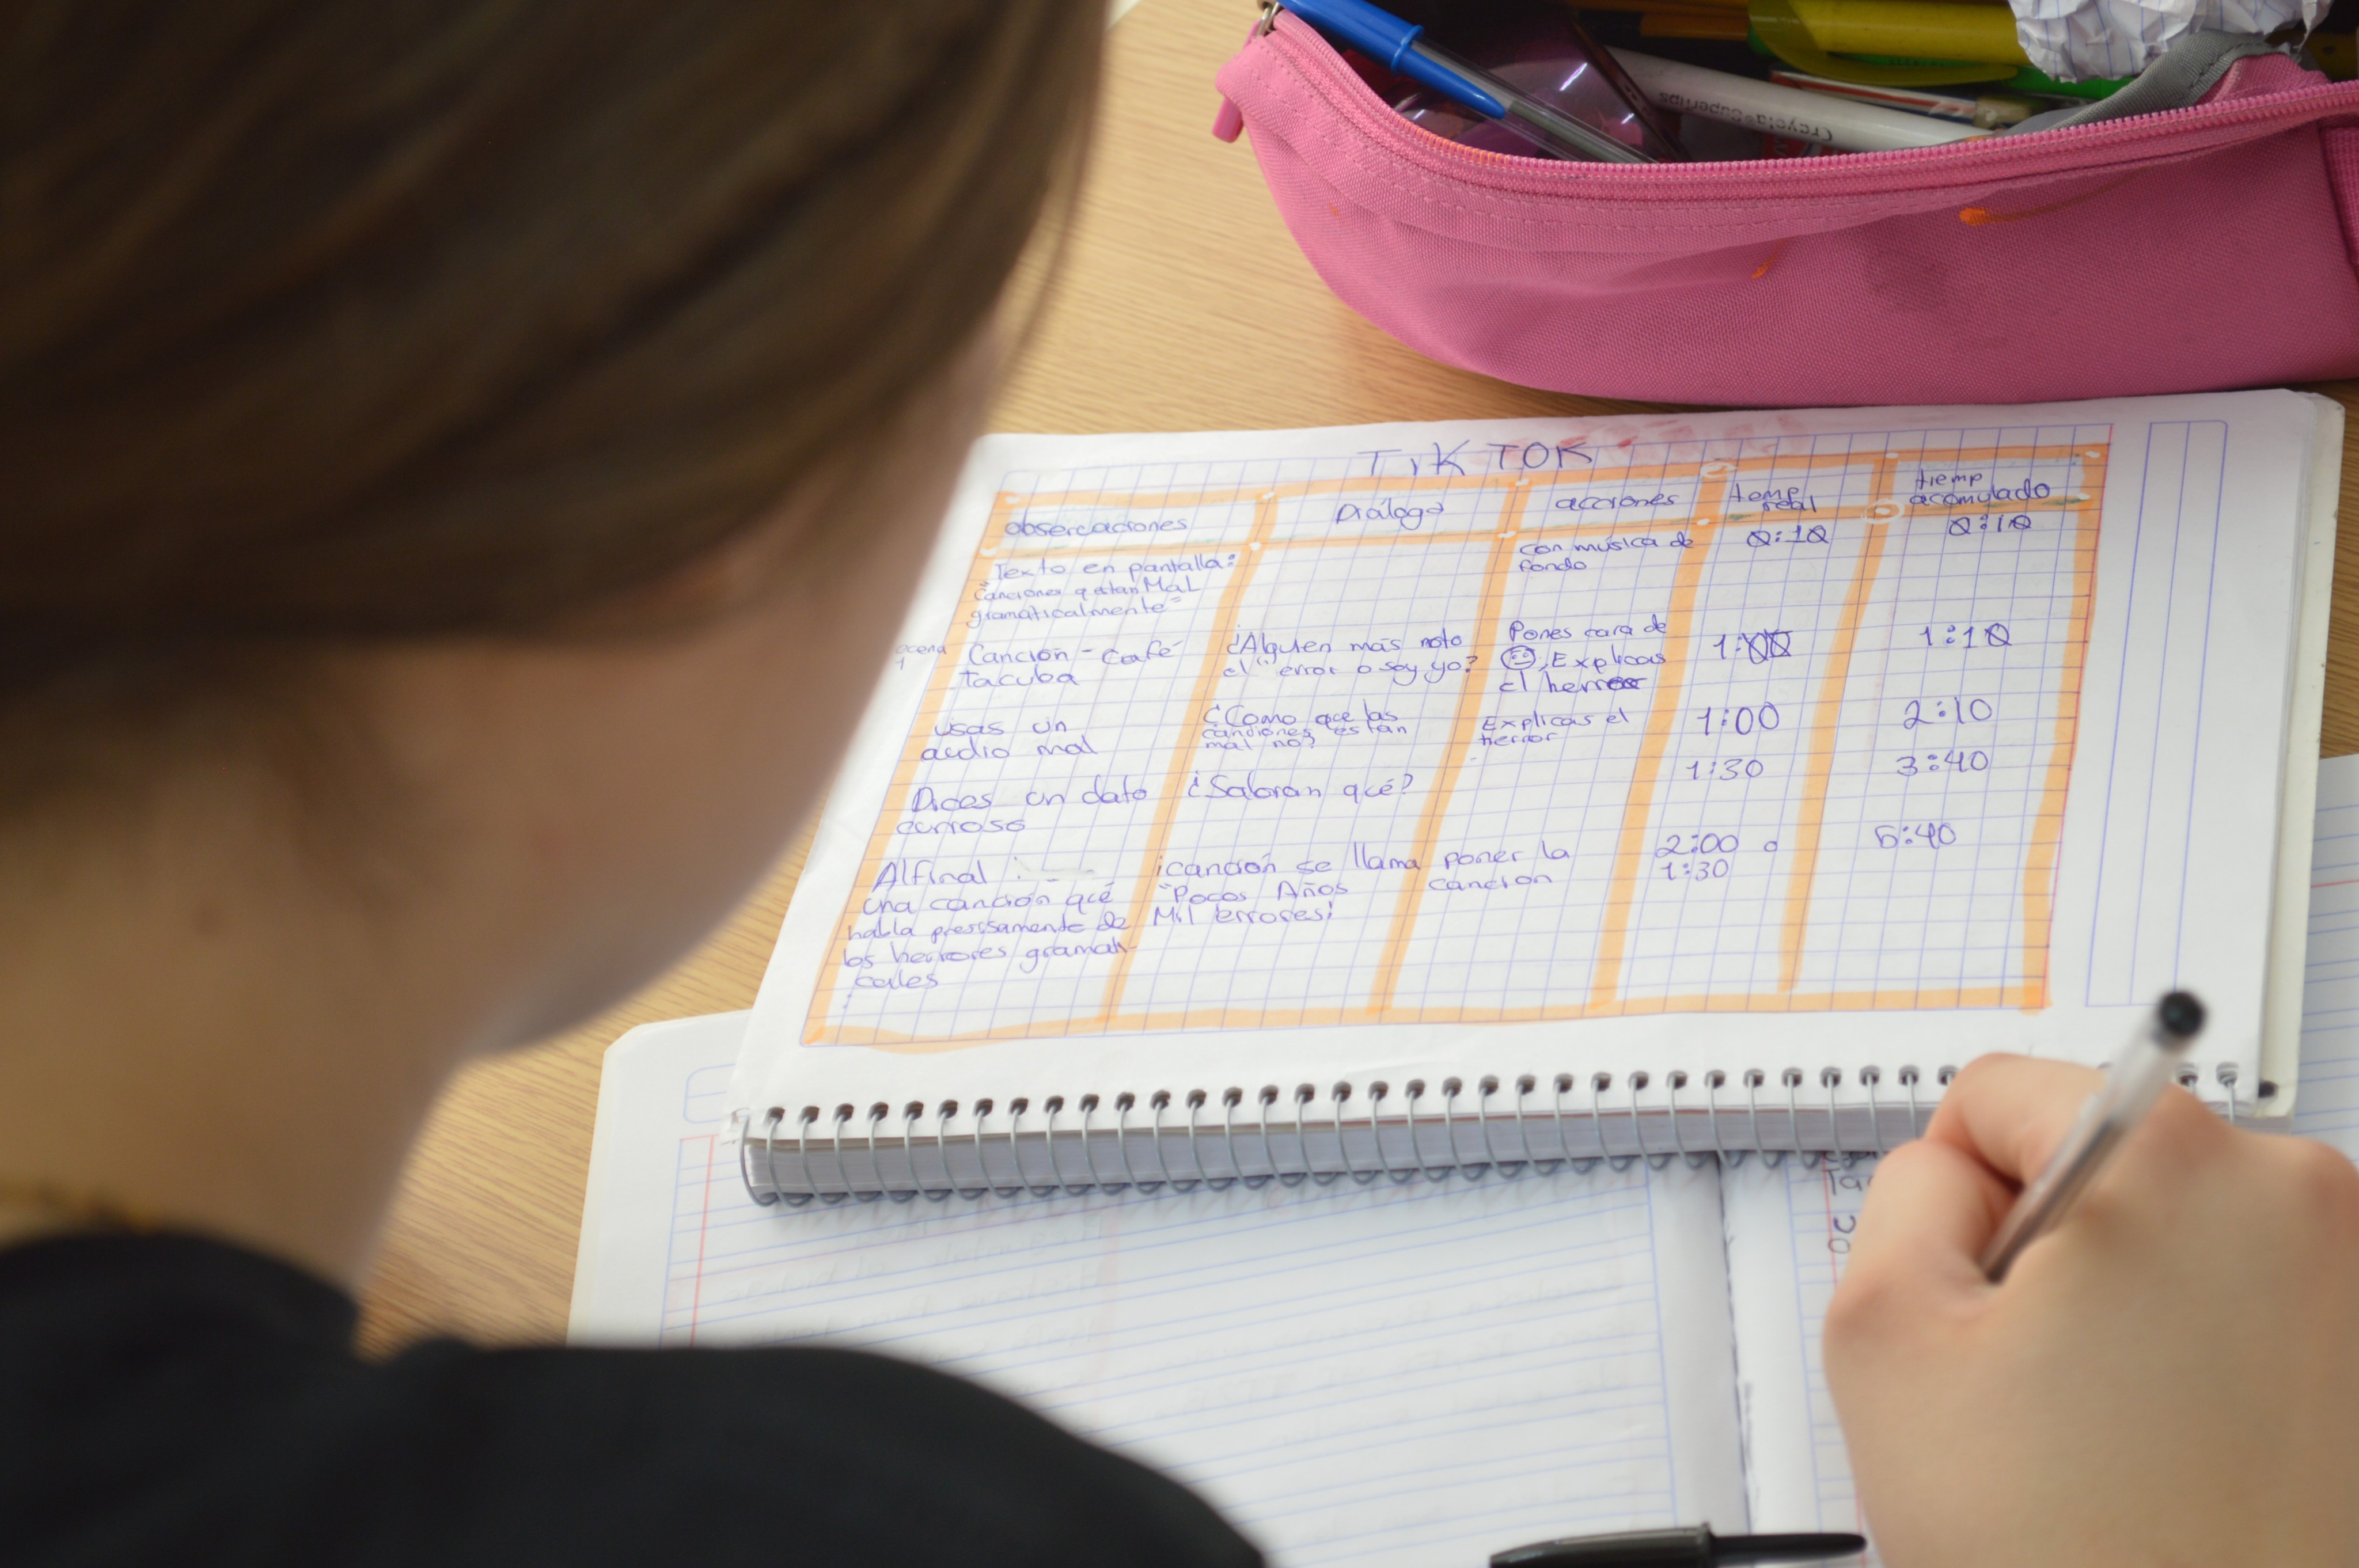 Crayola SuperTips
TIK TOK
obsercaciones
Diálogo
acciones
temp
real
tiemp
acomulado
Texto en pantalla:
"Canciones q estan MaL
gramaticalmente"
con música de
fondo
0:10
0:10
ecena
1
Canción - café
tacuba
¿Alguien más noto
el "error o soy yo?
Pones cara de
, Explicas
el herror
1:00
1:10
usas un
audio mal
¿Como que las
canciones están
mal no?
Explicas el
herror
1:00
2:10
Dices un dato
curioso
¿Sabran qué?
1:30
3:40
Al final :
una canción qué
habla presisamente de
los herrores gramati-
cales
¡canción se llama
"Pocos Años
Mil errores¡
poner la
canción
2:00 o
1:30
5:40